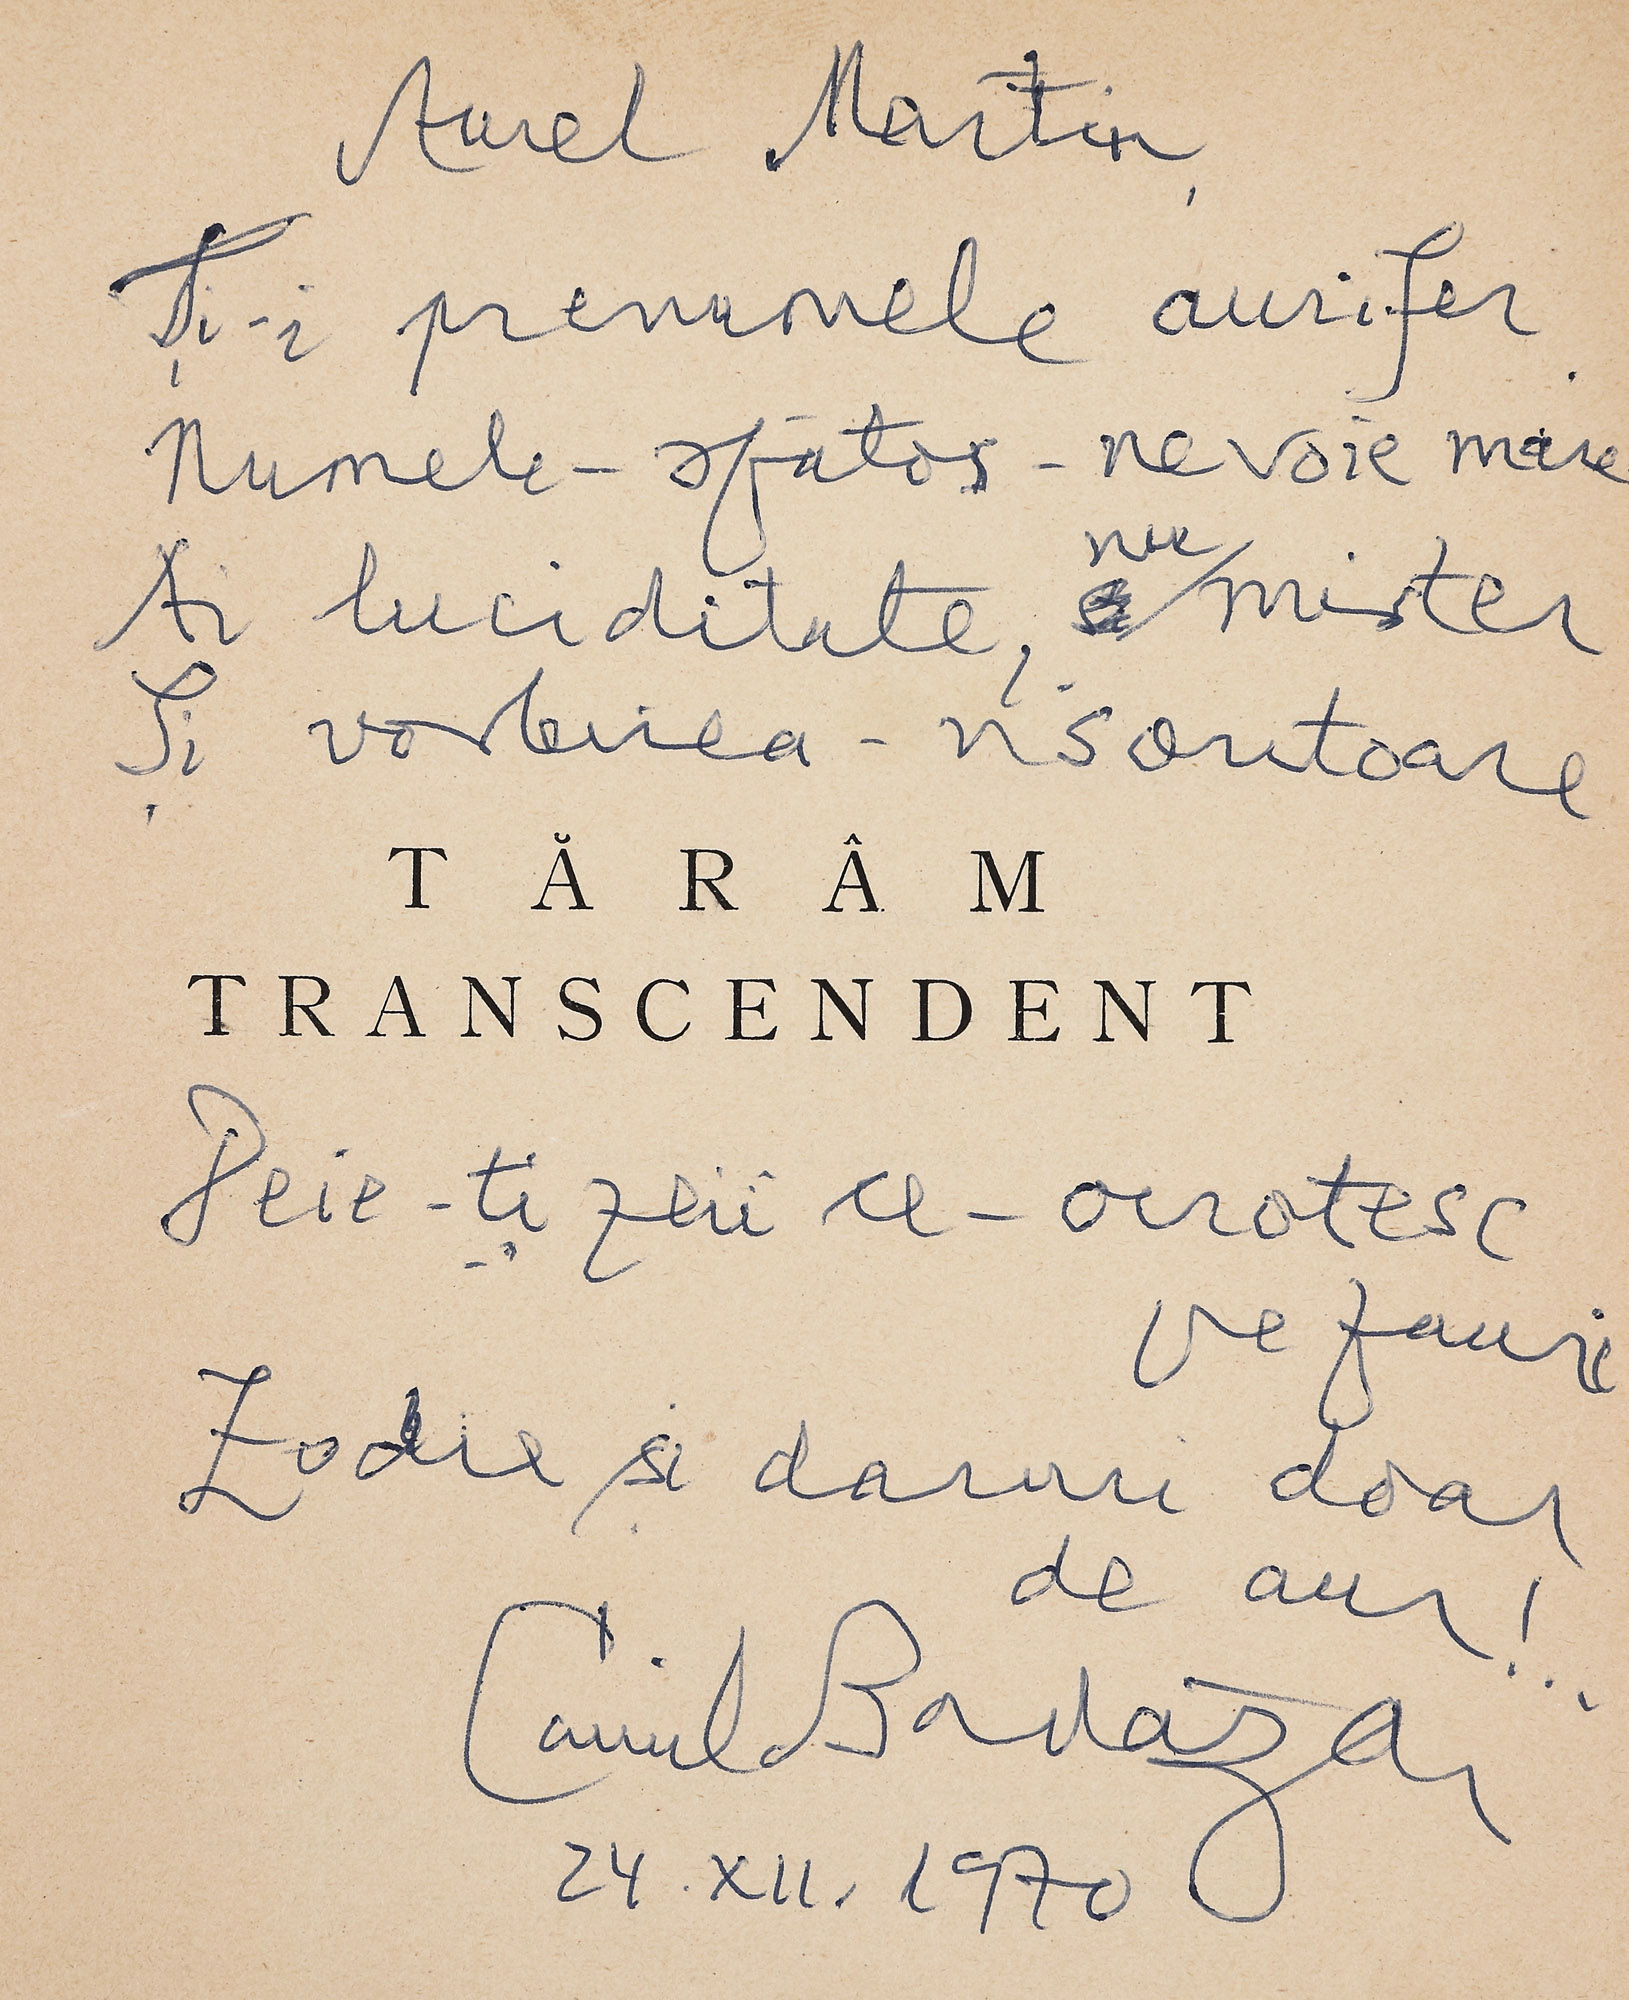 Aurel Martin,
Ți-i prenumele aurifer.
Numele - sfătos - nevoie mare
Ai luciditate, nu mister
Și vorbirea - n
TĂRÂM
TRANSCENDENT
Deie-ți zeii ce-ocrotesc
pe fauri
Zodie și daruri doar
de aur!..
Camil Baltazar
24.XII.1970